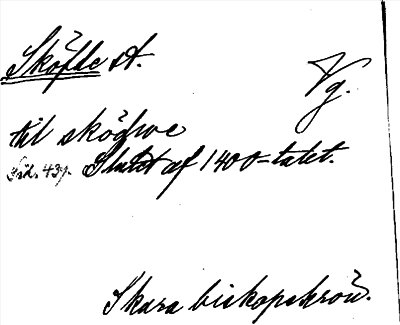 Sköfde st.
Vg.
til sködwe
Sid. 439. Slutet af 1400-talet.
Skara biskopskrön.